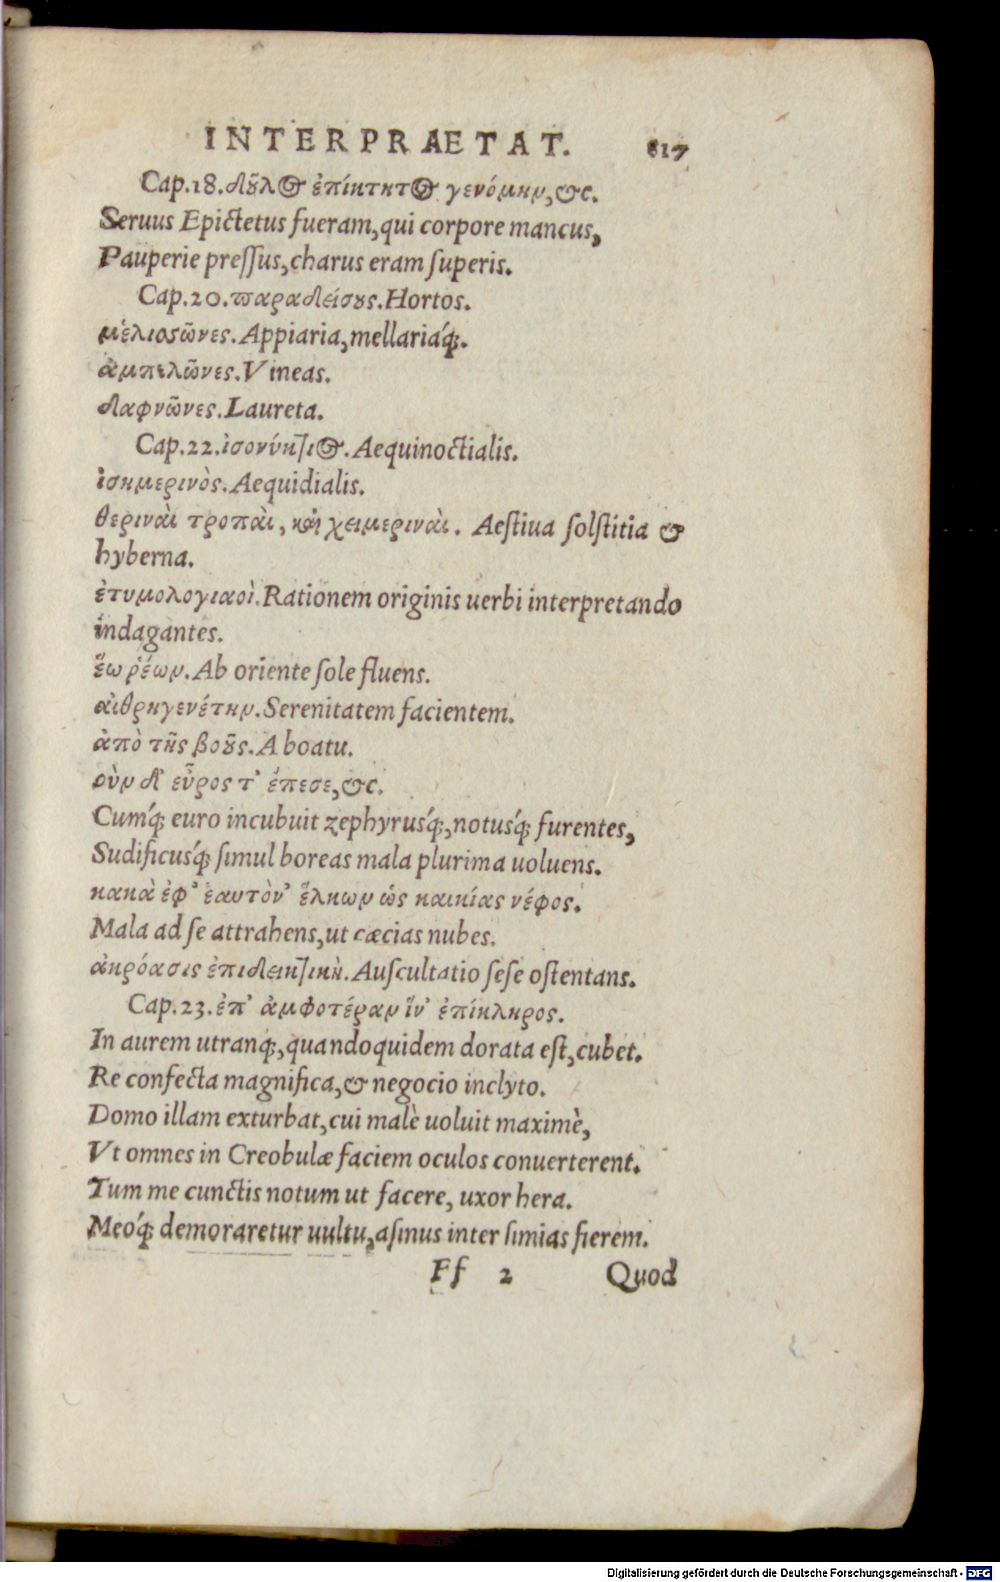 INTERPRAETAT. 817
Cap.18. δοῦλος ἐπίκτητος γενόμην, &c.
Seruus Epictetus fueram, qui corpore mancus,
Pauperie pressus, charus eram superis.
Cap.20. παραδείσους. Hortos.
μελισσῶνες. Appiaria, mellariaq́;.
ἀμπελῶνες. Vineas.
δαφνῶνες. Laureta.
Cap.22. ἰσονύκτιος. Aequinoctialis.
ἰσημερινὸς. Aequidialis.
θεριναὶ τροπαὶ, καὶ χειμεριναὶ. Aestiua solstitia &
hyberna.
ἐτυμολογικοὶ. Rationem originis uerbi interpretando
indagantes.
ἕω ῥέων. Ab oriente sole fluens.
αἰθρηγενέτην. Serenitatem facientem.
ἀπὸ τῆς βοῆς. A boatu.
σὺν δ' εὖρος τ' ἔπεσε, &c.
Cumq́; euro incubuit zephyrusq́;, notusq́; furentes,
Sudificusq́; simul boreas mala plurima uoluens.
κακὰ ἐφ' ἑαυτὸν' ἕλκων ὡς καικίας νέφος.
Mala ad se attrahens, ut cæcias nubes.
ἀκρόασις ἐπιδεικτικὴ. Auscultatio sese ostentans.
Cap.23. ἐπ' ἀμφοτέραν ἵν' ἐπίκληρος.
In aurem utranq;, quandoquidem dorata est, cubet.
Re confecta magnifica, & negocio inclyto.
Domo illam exturbat, cui malè uoluit maximè,
Vt omnes in Creobulæ faciem oculos conuerterent.
Tum me cunctis notum ut facere, uxor hera.
Meoq́; demoraretur uultu, asinus inter simias fierem.
Ff 2 Quod
Digitalisierung gefördert durch die Deutsche Forschungsgemeinschaft - DFG